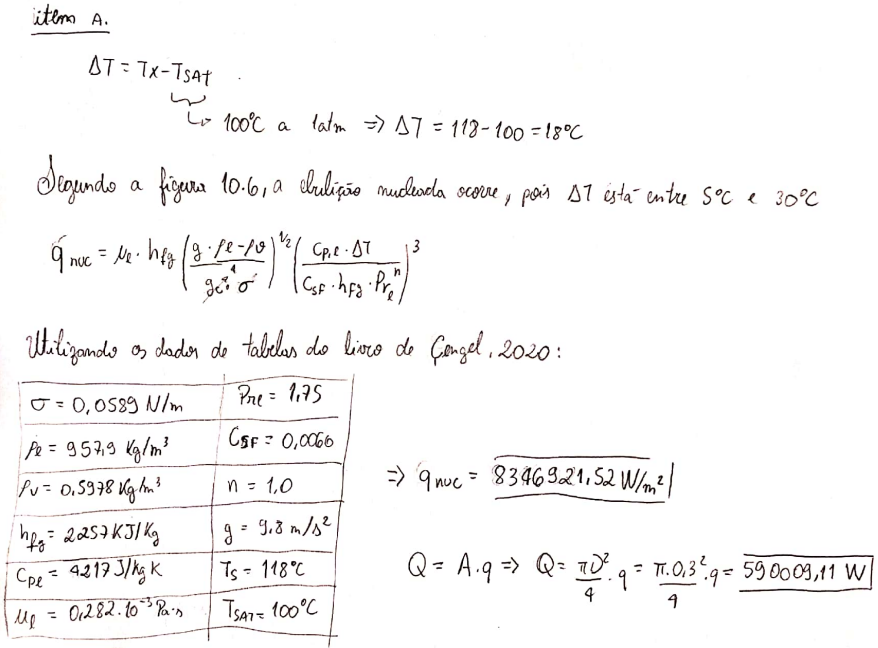 item A.
ΔT = Tx - TSAT
↳ 100°C a 1atm => ΔT = 118-100 = 18°C
Segundo a figura 10.6, a ebulição nucleada ocorre, pois ΔT está entre 5°C e 30°C
q̇nuc = μl · hfg (g · ρl-ρv / σ)^1/2 (Cp,l · ΔT / CSF · hfg · Prl^n)^3
Utilizando os dados de tabelas do livro de Çengel, 2020:
σ = 0,0589 N/m Prl = 1,75
ρl = 957,9 Kg/m³ CSF = 0,0060
ρv = 0,5978 Kg/m³ n = 1,0
hfg = 2257 KJ/Kg g = 9,8 m/s²
Cpl = 4217 J/kg K Ts = 118°C
μl = 0,282.10⁻³ Pa·s TSAT = 100°C
=> q̇nuc = 8346921,52 W/m²
Q = A.q => Q = πD²/4 . q = π.0,3²/4 .q = 590009,11 W